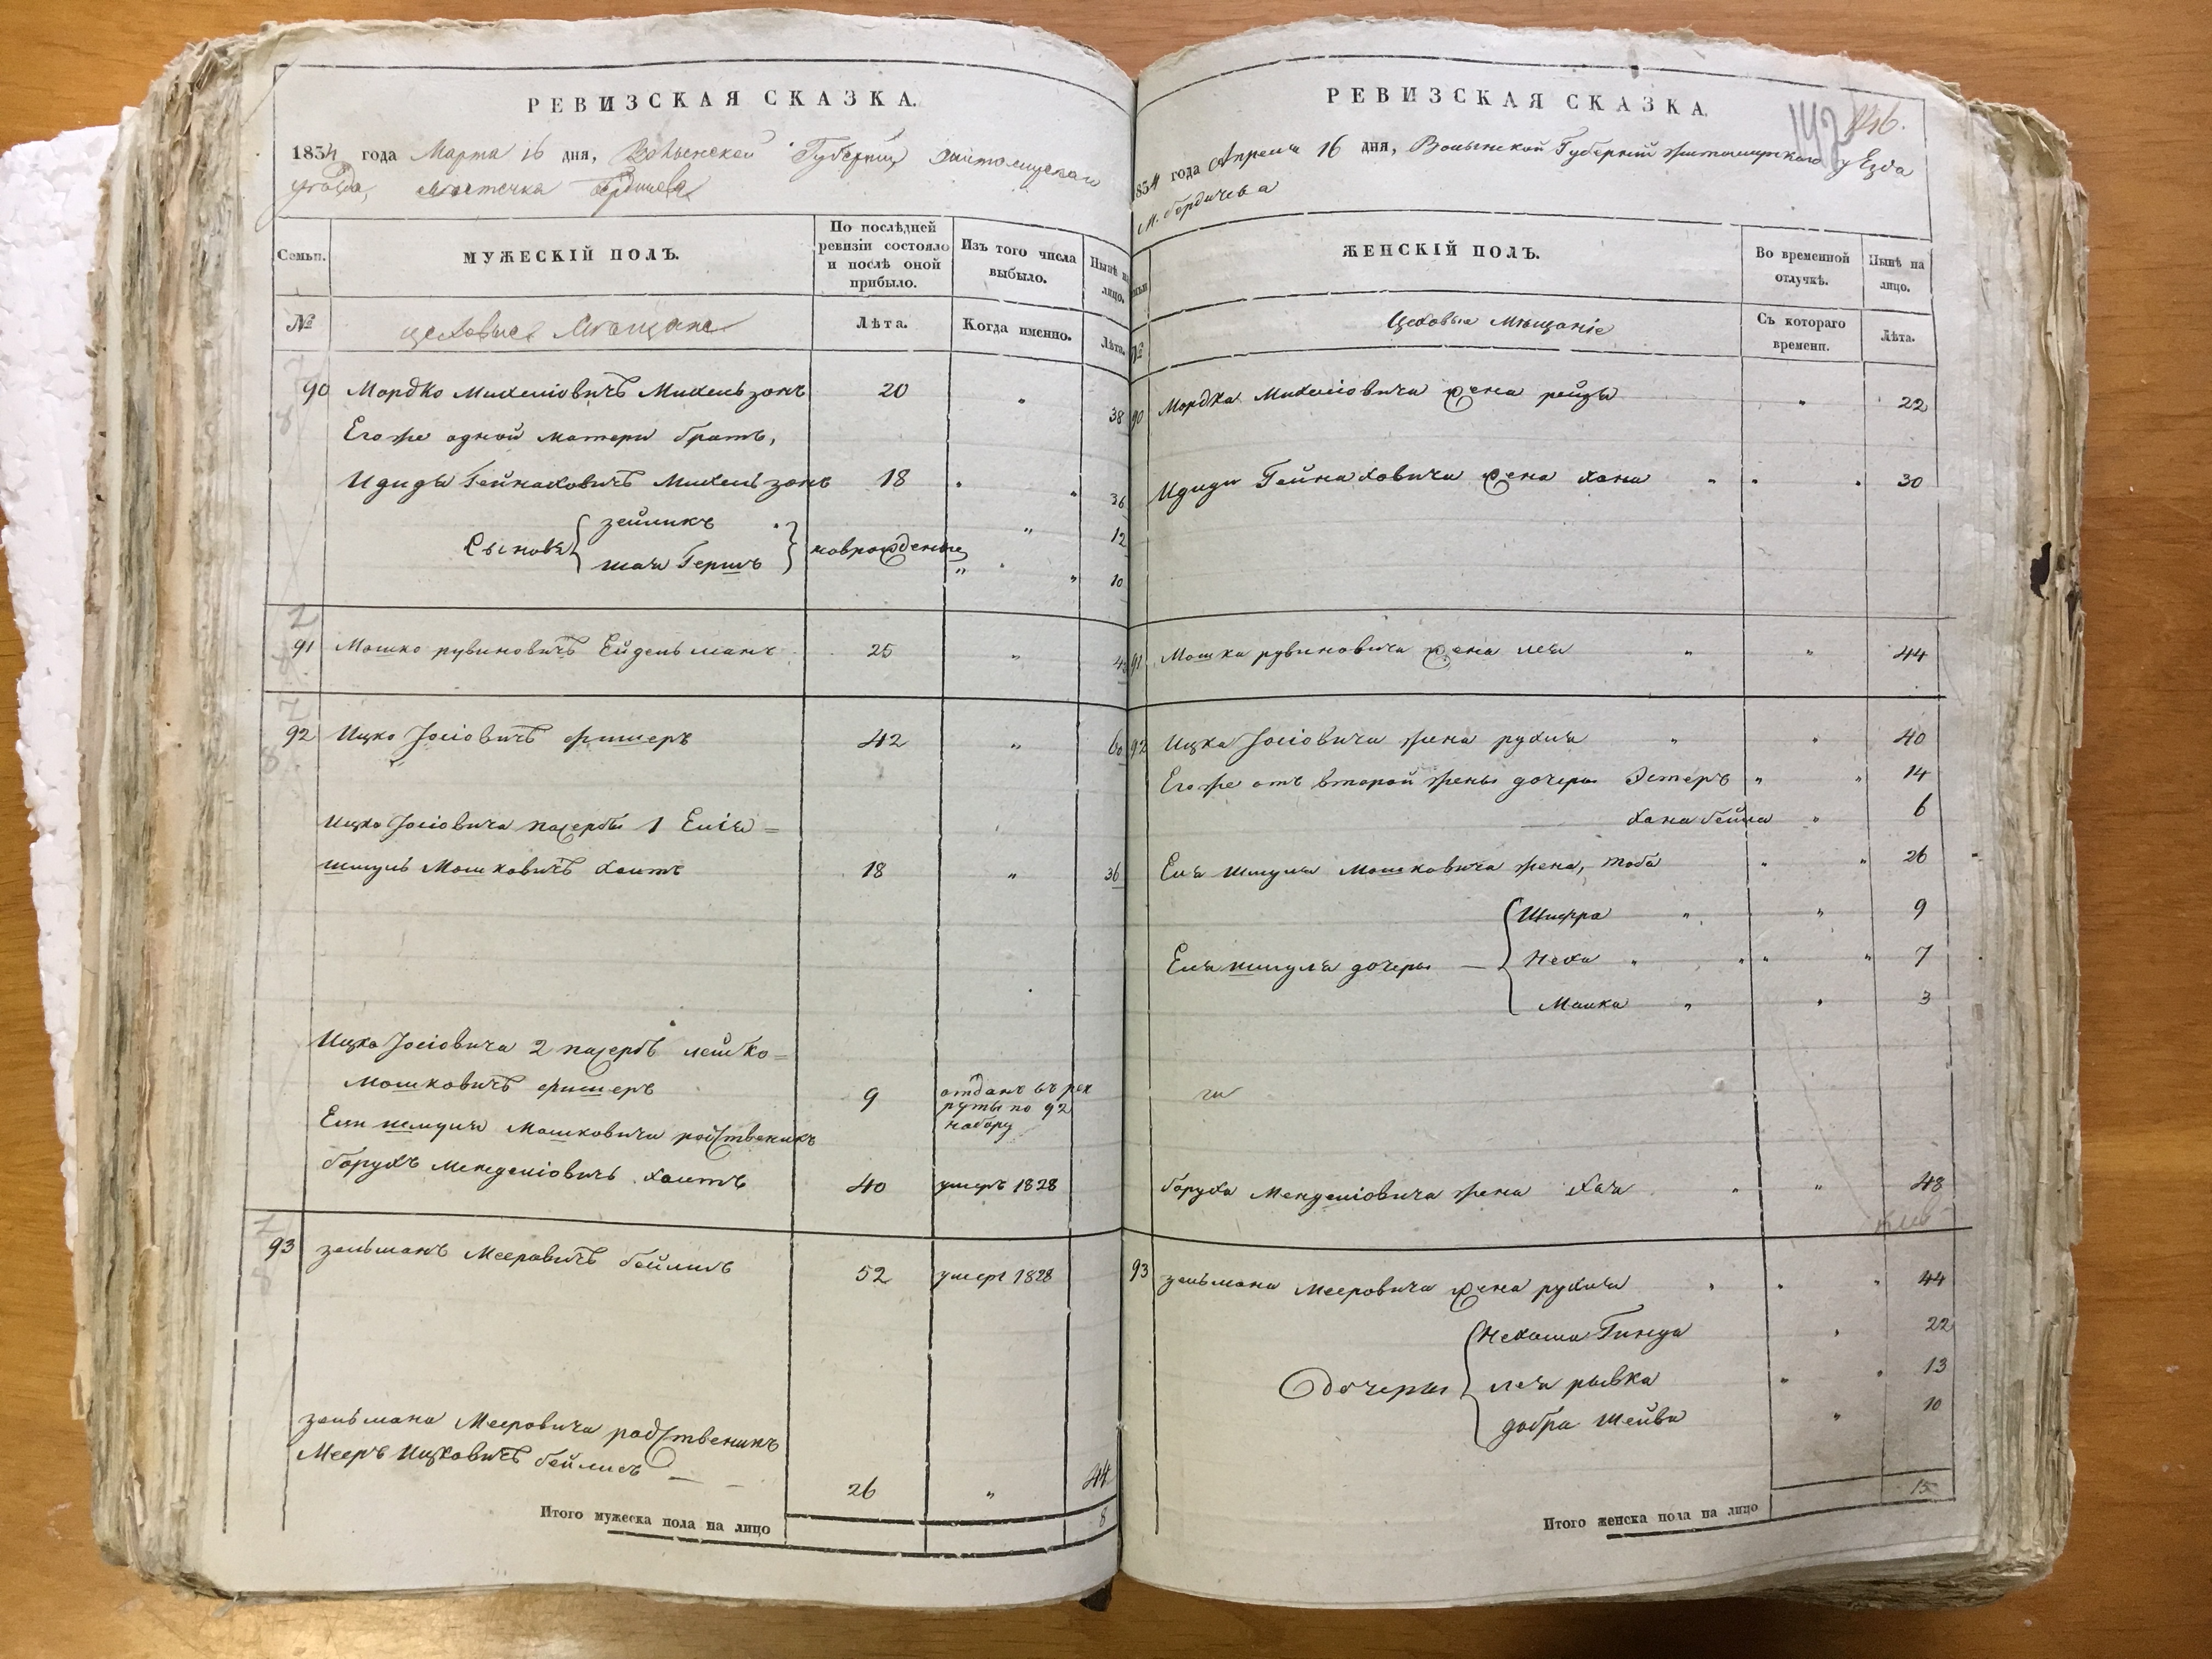 РЕВИЗСКАЯ СКАЗКА.
1834 года Марта 16 дня, Волынской Губерніи, Житомирскаго
уезда, местечка Бердичева
Семьи.
МУЖЕСКІЙ ПОЛЪ.
По послѣдней ревизіи состояло и послѣ оной прибыло.
Изъ того числа выбыло.
Нынѣ на лицо.
№
цеховые Мещане
Лѣта.
Когда именно.
Лѣта.
90 Мордко Михеліовичъ Михельзонъ 20 " 38
Его же одной матери братъ,
Идиды Гейнаховичъ Михельзонъ 18 " " 36
Сыновя { зейликъ } новрожденые " 12
шая Гершъ " " 10
91 Мошко рувиновичъ Ейдельманъ 25 "
92 Ицко Іосіовичъ фишеръ 42 " 60
Ицка Іосіовича пасербы 1 Еліа =
шмуль Мошковичъ Хаитъ 18 " 36
Ицка Іосіовича 2 пасербъ лейбко =
Мошковичъ фишеръ 9 отданъ въ рек
руты по 92
набору
Ели шмуля Мошковича родственикъ
борухъ Менделіовичъ Хаитъ 40 умеръ 1828
93 зельманъ Мееровичъ бейлисъ 52 умеръ 1828
зельмана Мееровича родственикъ
Мееръ Ицковичъ бейлисъ 26 " 44
Итого мужеска пола на лицо 8
РЕВИЗСКАЯ СКАЗКА.
142 146.
834 года Апреля 16 дня, Волынской Губерній Житомирскаго уЕзда
М. бердичева
ЖЕНСКІЙ ПОЛЪ.
Во временной отлучкѣ.
Нынѣ на лицо.
№
Цеховые Мѣщаніе
Съ котораго времени.
Лѣта.
90 Мордка Михеліовича жена рейзя " 22
Идиди Гейнаховича жена хана " " " 30
91 Мошка рувиновича жена лея " " 44
92 Ицка Іосіовича жена рухля " " 40
Его же отъ второй жены дочеры Эстеръ " " 14
хана бейла " 6
Еля шмуля Мошковича жена, тоба " " 26
{ Шифра " " 9
Еля шмуля дочеры — Неха " " " " 7
Малка " " 3
боруха Менделіовича жена Хая " " 48
93 зельмана Мееровича жена рухля " " " 44
{ Нехама Гинда " 22
дочеры лея рывка " " 13
добра шейва " 10
Итого женска пола на лицо 15